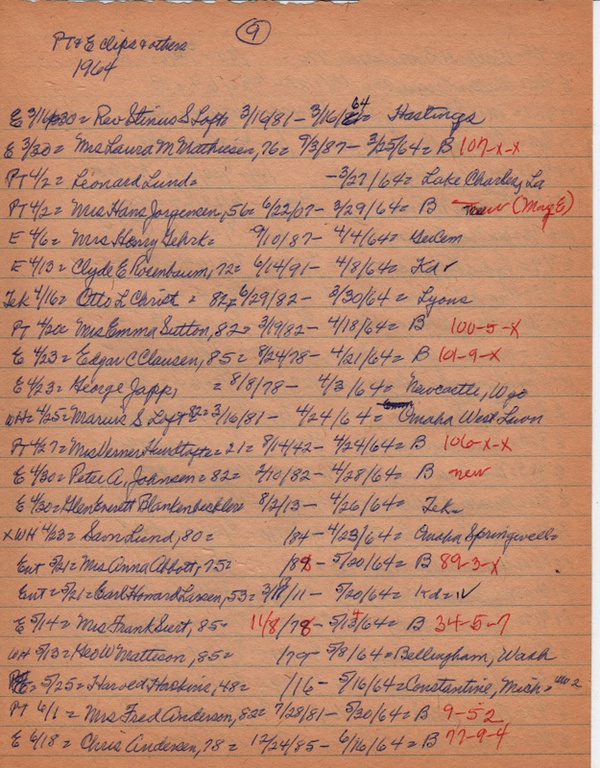 9
PT & E clips & others
1964
E 3/16 = Rev Stinus S Loft 3/16/81 - 3/16/64 = Hastings
E 3/30 = Mrs Laura M Mathiesen, 76 = 9/3/87 - 3/25/64 = B 107-x-x
PT 4/2 = Leonard Lund = -3/27/64 = Lake Charles, La
PT 4/2 = Mrs Hans Jorgensen, 56 = 6/22/07 - 3/29/64 = B new (May E)
E 4/6 = Mrs Henry Gehrk = 9/10/87 - 4/4/64 = GerCem
E 4/13 = Clyde E Rosenbaum, 72 = 6/14/91 - 4/8/64 = Kd ✓
Tek 4/16 = Otto L Christ = 82 = 6/29/82 - 3/30/64 = Lyons
PT 4/20 Mrs Emma Sutton, 82 = 3/19/82 - 4/18/64 = B 100-5-x
E 4/23 = Edgar C Clausen, 85 = 8/24/78 - 4/21/64 = B 101-9-x
E 4/23 = George Japp, = 8/8/78 - 4/3/64 = Newcastle, Wyo
WH 4/25 = Marius S Loft 82 = 3/16/81 - 4/24/64 = Omaha West Lawn
PT 4/27 = Mrs Verner Hundtofte = 21 = 8/14/42 - 4/24/64 = B 106-x-x
E 4/30 = Peter A, Johnsen = 82 = 2/10/82 - 4/28/64 = B new
E 4/30 = Glen Everett Blankenbeckler 8/2/13 - 4/26/64 = Tek
x WH 4/23 = Sam Lund, 80 = /84 - 4/23/64 = Omaha Springwell
Ent 5/21 = Mrs Anna Abbott, 75 = /88 - 5/20/64 = B 89-3-x
Ent = 5/21 = Earl Howard Larsen, 53 = 3/18/11 - 5/20/64 = Kd = ✓
E 5/14 = Mrs Frank Siert, 85 = 11/8/78 - 5/13/64 = B 34-5-7
WH 5/13 = Geo W Mattison, 85 = /79 - 5/8/64 = Bellingham, Wash
E = 5/25 = Harold Haskins, 48 = /16 - 5/16/64 = Constantine, Mich = WW 2
PT 6/1 = Mrs Fred Anderson, 82 = 7/28/81 - 5/30/64 = B 9-52
E 6/18 = Chris Andersen, 78 = 12/24/85 - 6/16/64 = B 77-9-4